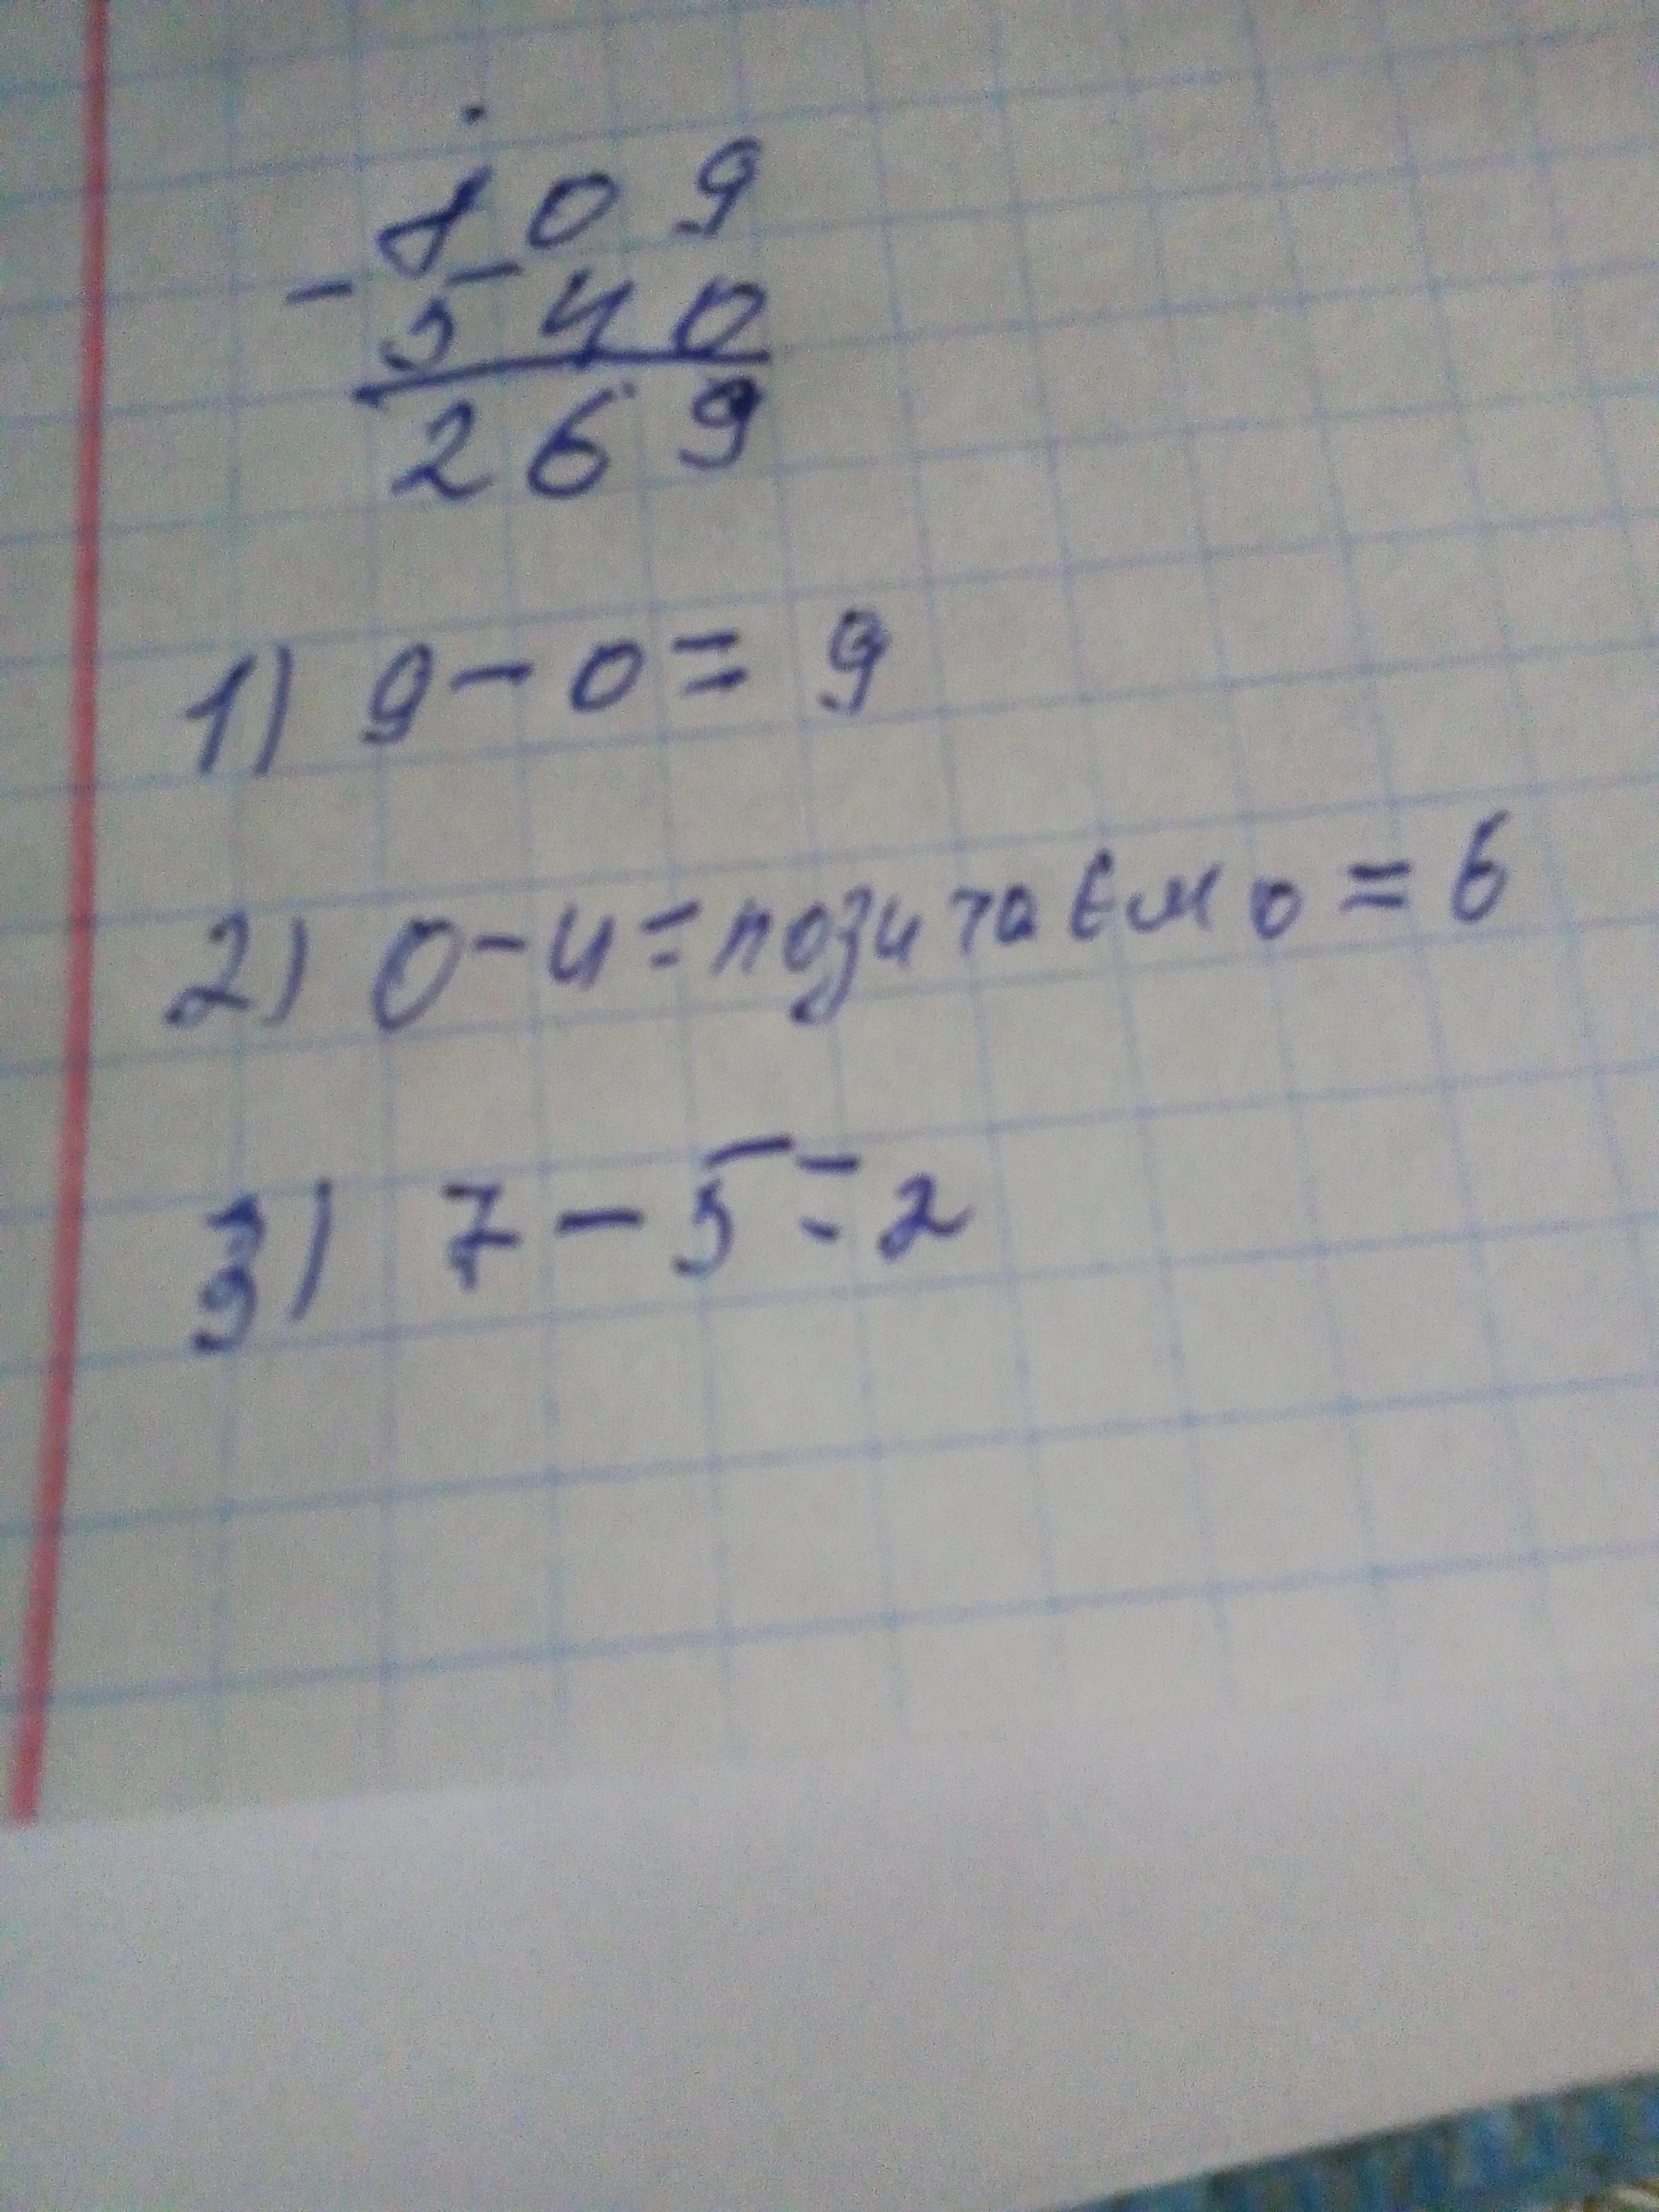 809
- 540
269
1) 9 - 0 = 9
2) 0 - 4 = позичаємо = 6
3) 7 - 5 = 2